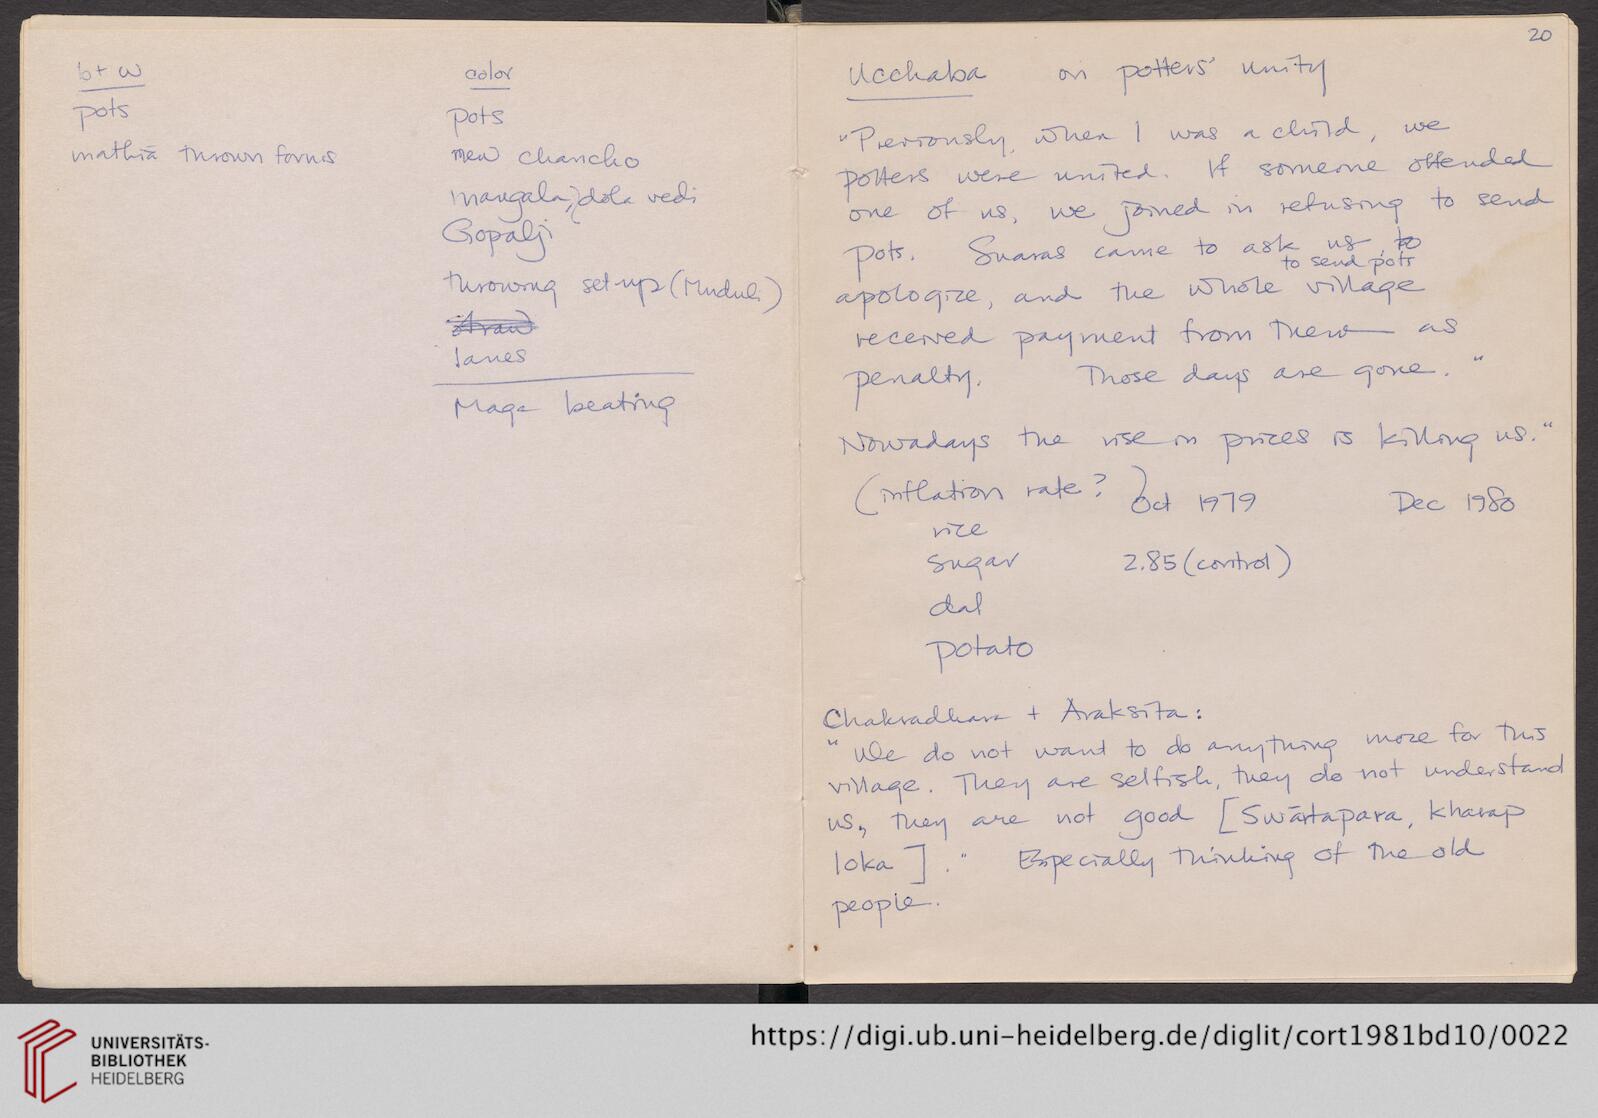 b+w
pots
mathiā thrown forms
color
pots
new chancho
mangala, dola vedi
Gopalji
throwing set-up (Muduli)
straw
lanes
Maga beating
20
Ucchaba on potters' unity
"Previously, when I was a child, we
potters were united. If someone offended
one of us, we joined in refusing to send
pots. Suaras came to ask us, to
to send pots
apologize, and the whole village
received payment from them as
penalty. Those days are gone."
Nowadays the rise in prices is killing us."
(inflation rate?) Oct 1979 Dec 1980
rice
sugar 2.85 (control)
dal
potato
Chakradhara + Araksita:
"We do not want to do anything more for this
village. They are selfish, they do not understand
us, they are not good [Swārtapara, kharap
loka]." Especially thinking of the old
people.
UNIVERSITÄTS-
BIBLIOTHEK
HEIDELBERG
https://digi.ub.uni-heidelberg.de/diglit/cort1981bd10/0022